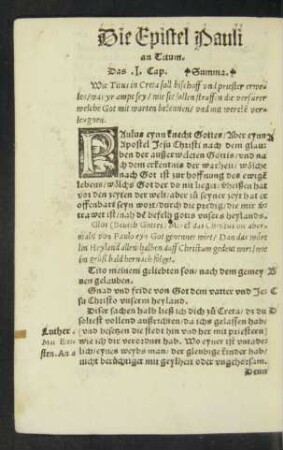 Die Epistel Pauli
an Titum.
Das .I. Cap. Summa.
Wie Titus in Creta soll bischoff und priester erwe-
len/ was yr ampt sey/ wie sie sollen straffen die
welche Got mit worten bekennen/ und mit wercke ver-
leugnen.
PAulus eynn knecht Gottes/ Aber eynn A
Apostel Jesu Christi nach dem glau
ben der außerweleten Gottis/ und na
ch dem erkentnis der warheit/ wölche
nach Got ist zur hoffnung des ewigē
lebens/ wölchs Got der do nit lieget/ verheissen hat
vor den zeyten der welt/ aber zu seyner zeyt hat er
offenbart seyn wort/ durch die predig/ die mir ver
trawet ist/ nach dē befelh gotis unsers heylands.
mals von Paulo eyn Got genennet wirt/ Dan das wort
lin Heyland allenthalben auff Christum gedeut wirt/ wie
im grüß bald hernach folget.
Tito meinem geliebten son/ nach dem gemey B
nen gelauben.
Gnad und fride von Got dem vatter und Je C
su Christo unserm heyland.
Diser sachen halb ließ ich dich zu Creta/ dz du D
soltest vollend außrichten/ da ichs gelassen hab
Luther. und besetzen die stedt hin und her mit priestern/
wie ich dir verordnet hab. Wo eyner ist untade-
lich/ eynes weybs man/ der gleubige kinder hab/
nicht berüchtiget mit geylheit oder ungehorsam.
Denn